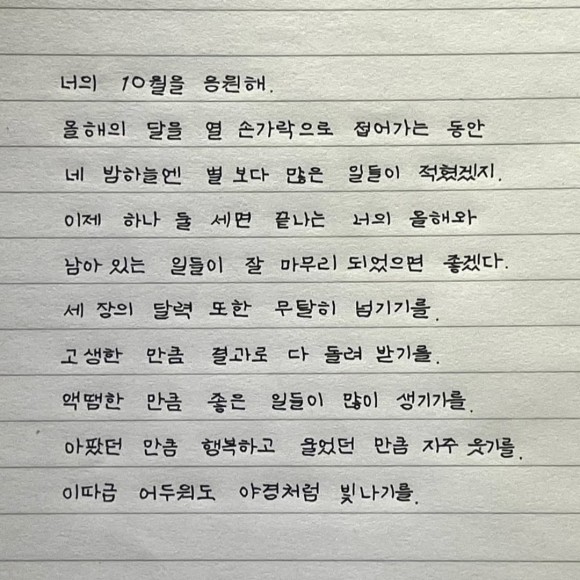 너의 10월을 응원해.
올해의 달을 열 손가락으로 접어가는 동안
네 밤하늘엔 별보다 많은 일들이 적혔겠지.
이제 하나 둘 세면 끝나는 너의 올해와
남아있는 일들이 잘 마무리 되었으면 좋겠다.
세 장의 달력 또한 무탈히 넘기기를.
고생한 만큼 결과로 다 돌려 받기를.
액땜한 만큼 좋은 일들이 많이 생기기를.
아팠던 만큼 행복하고 울었던 만큼 자주 웃기를.
이따금 어두워도 야경처럼 빛나기를.